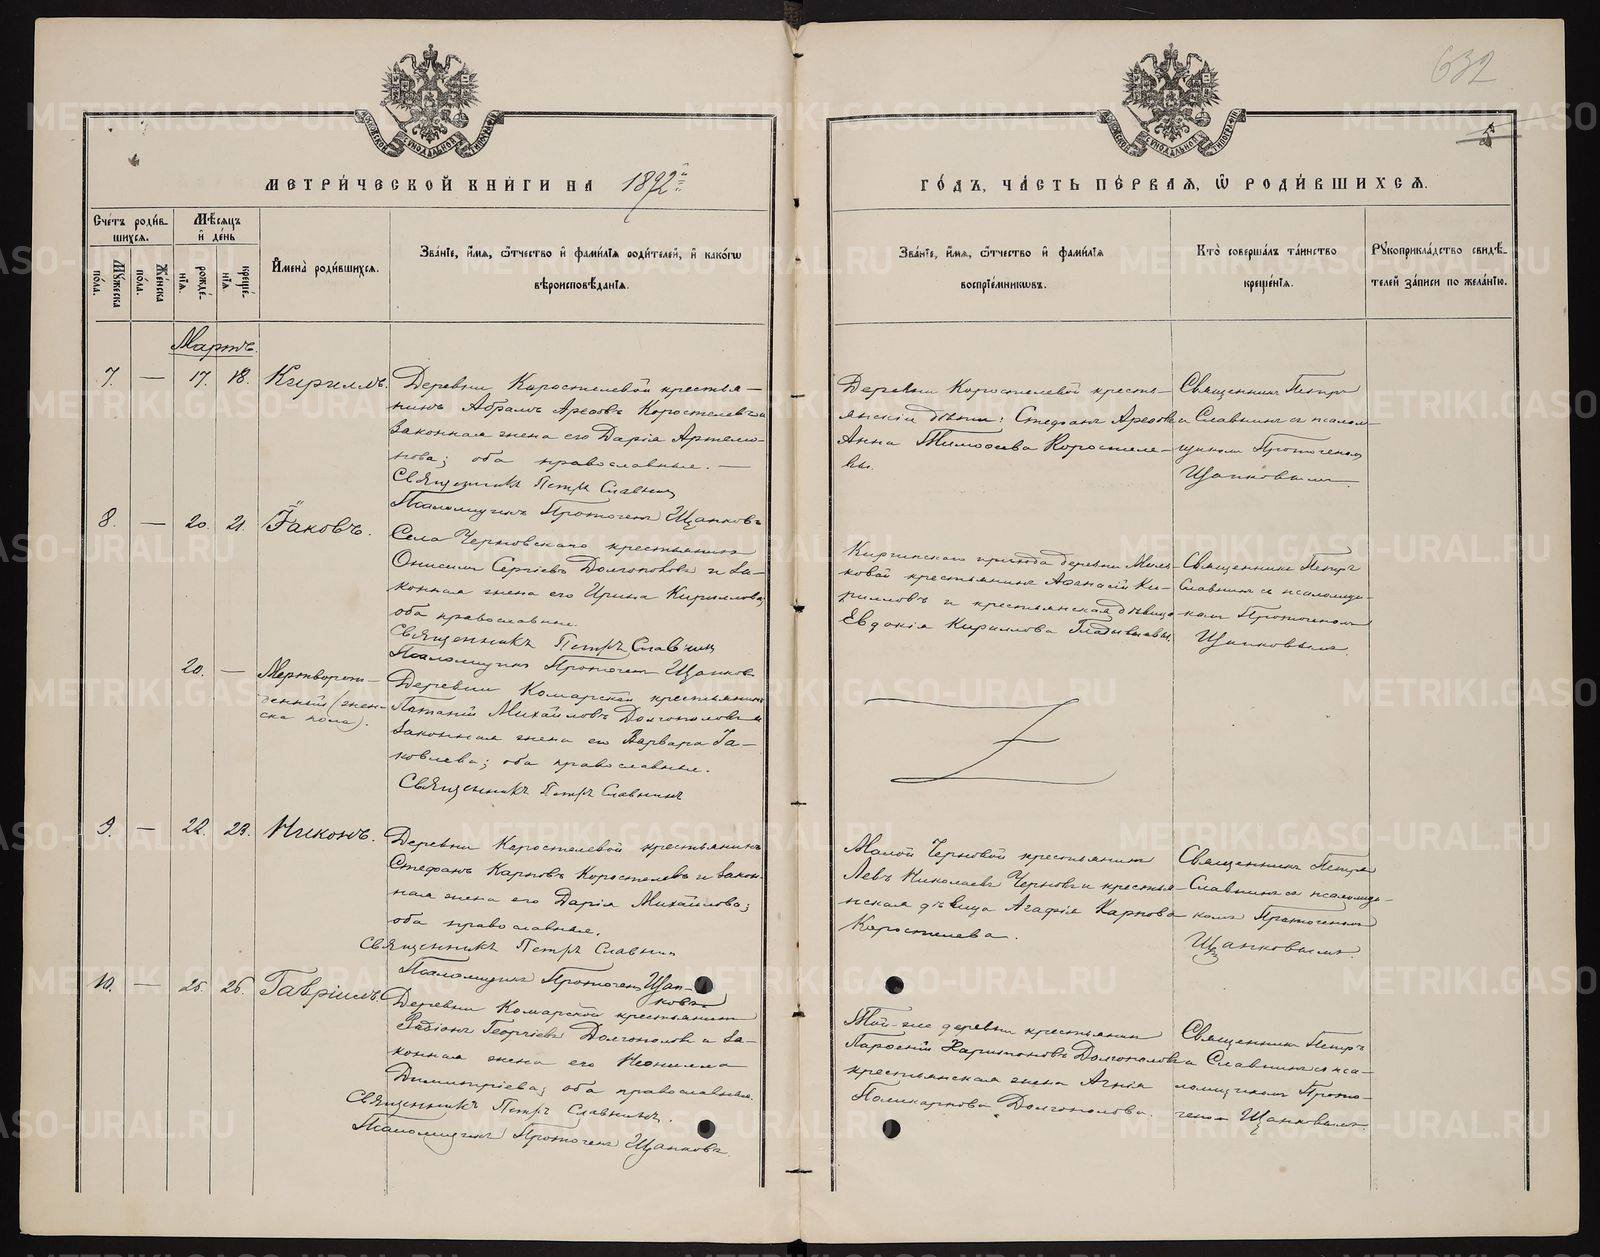 632
5
МЕТРИ́ЧЕСКОЙ КНИ́ГИ НА 1892й
ГО́ДЪ, ЧА́СТЬ ПЕ́РВАЯ, Ѡ҆ РОДИ́ВШИХСЯ.
Сче́тъ роди́в-
шихся.
Мѣ́сяцъ
и҆ де́нь
Мꙋ́жеска по́ла.
Же́нска по́ла.
рожде́-
нїя.
креще́-
нїя
И҆мена̀ роди́вшихся.
Зва́нїе, и҆́мя, ѻ҆́тчество и҆ фами́лїя роди́телей, и҆ како́гѡ
вѣроисповѣ́данїя.
Зва́нїе, и҆́мя, ѻ҆́тчество и҆ фами́лїя
воспрїе́мникѡвъ.
Кто̀ соверша́лъ та́инство
креще́нїя.
Рꙋкоприкла́дство свидѣ́-
телей за́писи по жела́нїю.
Мартъ.
7. — 17. 18. Кириллъ.
Деревни Коростелевой крестья-
нинъ Абрамъ Арефовъ Коростелевъ и
законная жена его Дарія Артемо-
нова; оба православные. —
Священникъ Петръ Славнин
Псаломщикъ Протогенъ Щапковъ
Деревни Коростелевой кресть-
янскіи дѣти: Стефанъ Арефов и
Анна Тимофеева Коростеле-
вы.
Священникъ Петръ
Славнинъ съ псалом-
щикомъ Протогеном
Щапковымъ.
8. — 20. 21. Іаковъ.
Села Черновскаго крестьянинъ
Онисимъ Сергіевъ Долгополовъ и за-
конная жена его Ирина Кириллова;
оба православные.
Священникъ Петръ Славнин
Псаломщикъ Протогенъ Щапков
Киргинскаго прихода деревни
крестьянинъ Афанасій Ки-
рилловъ и крестьянская дѣвица
Евдокія Кириллова
Священникъ Петръ
Славнинъ съ псаломщи-
комъ Протогеномъ
Щапковымъ.
20. — Мертворож-
денный (жен-
ска пола).
Деревни Комарской крестьянинъ
Михайловъ Долгополовъ и
законная жена его Варвара Іа-
ковлева; оба православные.
Священникъ Петръ Славнинъ
9. — 22. 23. Никонъ.
Деревни Коростелевой крестьянинъ
Стефанъ Карповъ Коростелевъ и закон-
ная жена его Дарія Михайлова;
оба православные.
Священникъ Петръ Славнин
Псаломщикъ Протогенъ Щап-
ковъ
Малой Черновой крестьянинъ
Левъ Николаевъ Черновъ и крестья-
нская дѣвица Агафія Карпова
Коростелева.
Священникъ Петръ
Славнинъ съ псаломщи-
комъ Протогеномъ
Щапковымъ.
10. — 25. 26. Гавріилъ.
Деревни Комарской крестьянинъ
Родіонъ Георгіевъ Долгополов и за-
конная жена его Неонилла
Димитріева; оба православные.
Священникъ Петръ Славнинъ.
Псаломщикъ Протогенъ Щапковъ
Той-же деревни крестьянин
Харитоновъ Долгополовъ и
крестьянская жена Агнія
Поликарпова Долгополова.
Священникъ Петръ
Славнинъ съ пса-
ломщикомъ Прото-
геном Щапковымъ.
METRIKI.GASO-URAL.RU